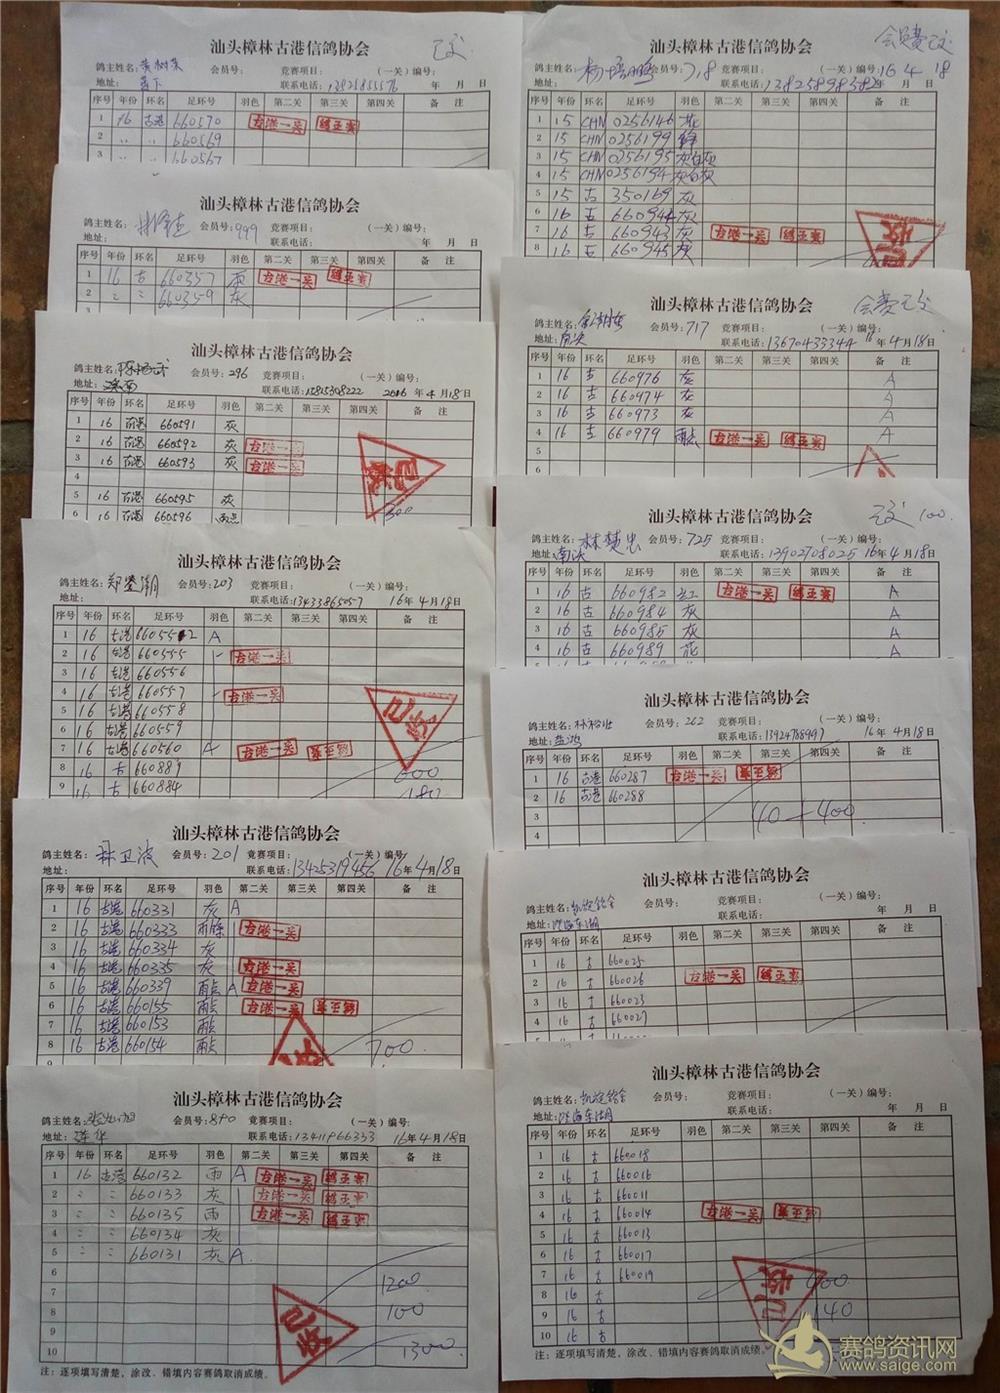 汕头樟林古港信鸽协会 已交
鸽主姓名: 会员号: 竞赛项目: (一关)编号:
地址: 联系电话: 13821855576 年 月 日
序号 年份 环名 足环号 羽色 第二关 第三关 第四关 备 注
1 16 古港 660570 古港一关
2 〃 〃 660569
3 〃 〃 660567
汕头樟林古港信鸽协会
鸽主姓名: 会员号: 999 竞赛项目: (一关)编号:
地址: 联系电话: 年 月 日
序号 年份 环名 足环号 羽色 第二关 第三关 第四关 备 注
1 16 古 660357 雨 古港一关
2 〃 〃 660359 灰
汕头樟林古港信鸽协会
鸽主姓名: 会员号: 296 竞赛项目: (一关)编号:
地址: 联系电话: 15815308222 2016 年 4 月 18 日
序号 年份 环名 足环号 羽色 第二关 第三关 第四关 备 注
1 16 古港 660591 灰
2 16 古港 660592 灰 古港一关
3 16 古港 660593 灰 古港一关
4
5 16 古港 660595 灰
6 16 古港 660596 雨点
已收
300
汕头樟林古港信鸽协会
鸽主姓名: 会员号: 203 竞赛项目: (一关)编号:
地址: 联系电话: 13433865057 16 年 4 月 18 日
序号 年份 环名 足环号 羽色 第二关 第三关 第四关 备 注
1 16 古港 660552 A
2 16 古港 660555 古港一关
3 16 古港 660556
4 16 古港 660557 古港一关
5 16 古港 660558
6 16 古港 660559
7 16 古港 660560 A 古港一关
8 16 古 660889
9 16 古 660884
已收
600
180
汕头樟林古港信鸽协会
鸽主姓名: 林卫波 会员号: 201 竞赛项目: (一关)编号:
地址: 联系电话: 13425319456 16 年 4 月 18 日
序号 年份 环名 足环号 羽色 第二关 第三关 第四关 备 注
1 16 古港 660331 灰 A
2 16 古港 660333 古港一关
3 16 古港 660334 灰
4 16 古港 660335 灰 古港一关
5 16 古港 660339 雨点 A 古港一关
6 16 古港 660155 雨点 古港一关
7 16 古港 660153 雨点
8 16 古港 660154 雨点
700
汕头樟林古港信鸽协会
鸽主姓名: 会员号: 840 竞赛项目: (一关)编号:
地址: 莲华 联系电话: 13411966333 16 年 4 月 18 日
序号 年份 环名 足环号 羽色 第二关 第三关 第四关 备 注
1 16 古港 660132 雨 A 古港一关
2 〃 〃 660133 灰 古港一关
3 〃 〃 660135 雨 古港一关
4 〃 〃 660134 灰
5 〃 〃 660131 灰 A
6
7 1200
8 100
9
10 1300
已收
注：逐项填写清楚，涂改、错填内容赛鸽取消成绩。
汕头樟林古港信鸽协会 会员费已交
鸽主姓名: 会员号: 718 竞赛项目: (一关)编号: 16 4 18
地址: 联系电话: 13825898382 年 月 日
序号 年份 环名 足环号 羽色 第二关 第三关 第四关 备 注
1 15 CHN 0256146 花
2 15 CHN 0256199
3 15 CHN 0256195 灰白灰
4 15 CHN 0256194 灰白灰
5 15 古 350169 灰
6 16 古 660944 灰
7 16 古 660943 灰 古港一关
8 16 古 660945 灰
已收
汕头樟林古港信鸽协会 会费已交
鸽主姓名: 会员号: 717 竞赛项目: (一关)编号:
地址: 南洪 联系电话: 13670433344 16 年 4 月 18 日
序号 年份 环名 足环号 羽色 第二关 第三关 第四关 备 注
1 16 古 660976 灰 A
2 16 古 660974 灰 A
3 16 古 660973 灰 A
4 16 古 660979 雨点 古港一关 A
5
6
汕头樟林古港信鸽协会 已交 100.
鸽主姓名: 林楚忠 会员号: 725 竞赛项目: (一关)编号:
地址: 南洪 联系电话: 13902708025 16 年 4 月 18 日
序号 年份 环名 足环号 羽色 第二关 第三关 第四关 备 注
1 16 古 660982 红 古港一关 A
2 16 古 660984 灰
3 16 古 660985 灰
4 16 古 660989 花 A
汕头樟林古港信鸽协会
鸽主姓名: 会员号: 262 竞赛项目: (一关)编号:
地址: 盐鸿 联系电话: 13924788497 16 年 4 月 18 日
序号 年份 环名 足环号 羽色 第二关 第三关 第四关 备 注
1 16 古港 660287 古港一关
2 16 古港 660288
3 40 + 400
4
汕头樟林古港信鸽协会
鸽主姓名: 凯旋铭舍 会员号: 竞赛项目: (一关)编号:
地址: 澄海东湖 联系电话: 年 月 日
序号 年份 环名 足环号 羽色 第二关 第三关 第四关 备 注
1 16 古 660025
2 16 古 660026 古港一关
3 16 古 660023
4 16 古 660027
汕头樟林古港信鸽协会
鸽主姓名: 凯旋铭舍 会员号: 竞赛项目: (一关)编号:
地址: 澄海东湖 联系电话: 年 月 日
序号 年份 环名 足环号 羽色 第二关 第三关 第四关 备 注
1 16 古 660018
2 16 古 660016
3 16 古 660011
4 16 古 660014 古港一关
5 16 古 660013
6 16 古 660017
7 16 古 660019
8 16 古
9 16 古
10 16 古
已收
400
140
注：逐项填写清楚，涂改、错填内容赛鸽取消成绩。
赛鸽资讯网
www.saige.com